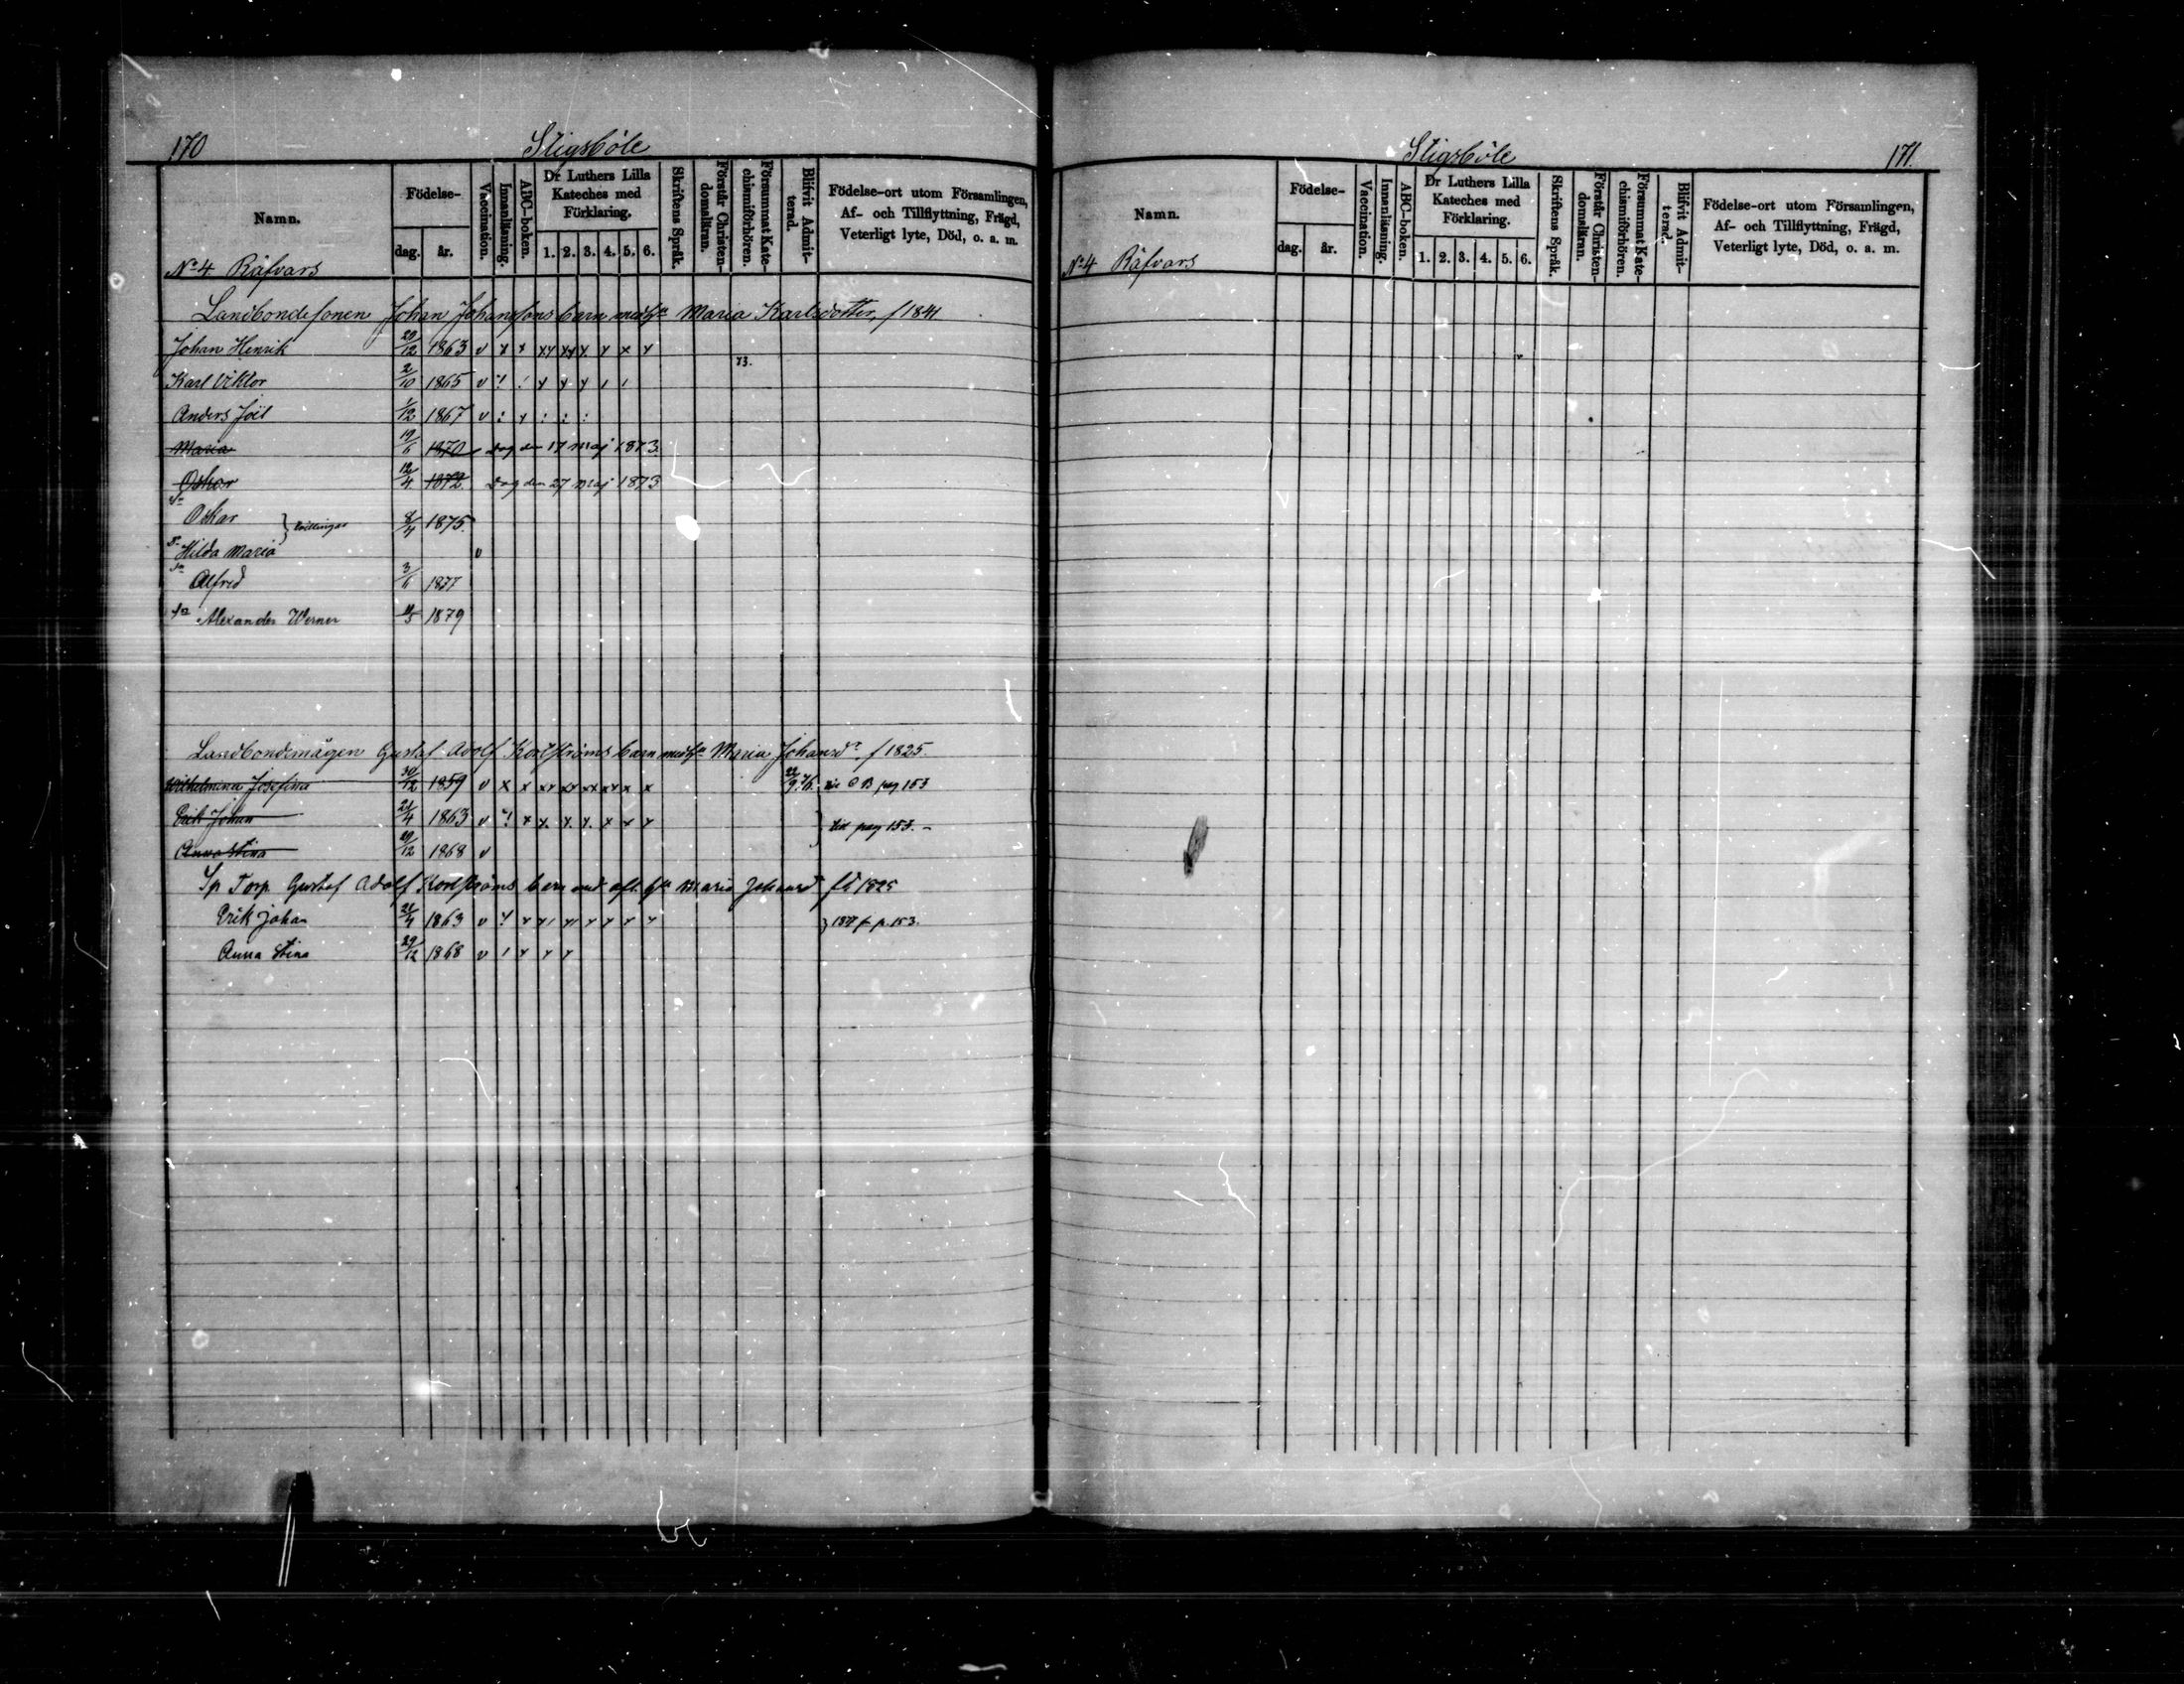 170
Stigsböle
Namn.
Födelse-
dag.
år.
Vaccination.
Innanläsning.
ABC-boken.
Dr Luthers Lilla
Kateches med
Förklaring.
1. 2. 3. 4. 5. 6.
Skriftens Språk.
Förstår Christen-
domsläran.
Försummat Kate-
chismiförhören.
Blifvit Admit-
terad.
Födelse-ort utom Församlingen,
Af- och Tillflyttning, Frägd,
Veterligt lyte, Död, o. a. m.
No 4 Räfvars
Landbondesonen Johan Johanssons barn med h:u Maria Karlsdotter, f 1841
Johan Henrik 29/12 1863 v x x xx xx x x x x
73.
Karl Viktor 2/10 1865 v
Anders Joël 1/12 1867 v
Maria 19/6 1870 Dog den 17 maj 1873.
Oskar 12/4 1872 Dog den 27 maj 1873
Sn Oskar } tvillingar 8/4 1875.
Dr Hilda Maria v
Sn Alfred 3/6 1877
Sn Alexander Werner 11/5 1879
Landbondemågen Gustaf Adolf Korlströms barn med h:u Maria Johansdr f 1825.
Wilhelmina Josefina 30/12 1859 v x x xx xx xx xx x x 22/9 76. se C B pag 153
Erik Johan 21/4 1863 v x x x x x x x
} till pag 153. -
Anna Stina 29/12 1868 v
Sp Torp. Gustaf Adolf Korlströms barn med afl. h:u Maria Johansdr född 1825
Erik Johan 21/4 1863 v
} 1877 fr p. 153.
Anna Stina 29/12 1868 v
Stigsböle
171.
Namn.
Födelse-
dag.
år.
Vaccination.
Innanläsning.
ABC-boken.
Dr Luthers Lilla
Kateches med
Förklaring.
1. 2. 3. 4. 5. 6.
Skriftens Språk.
Förstår Christen-
domsläran.
Försummat Kate-
chismiförhören.
Blifvit Admit-
terad.
Födelse-ort utom Församlingen,
Af- och Tillflyttning, Frägd,
Veterligt lyte, Död, o. a. m.
No 4 Räfvars